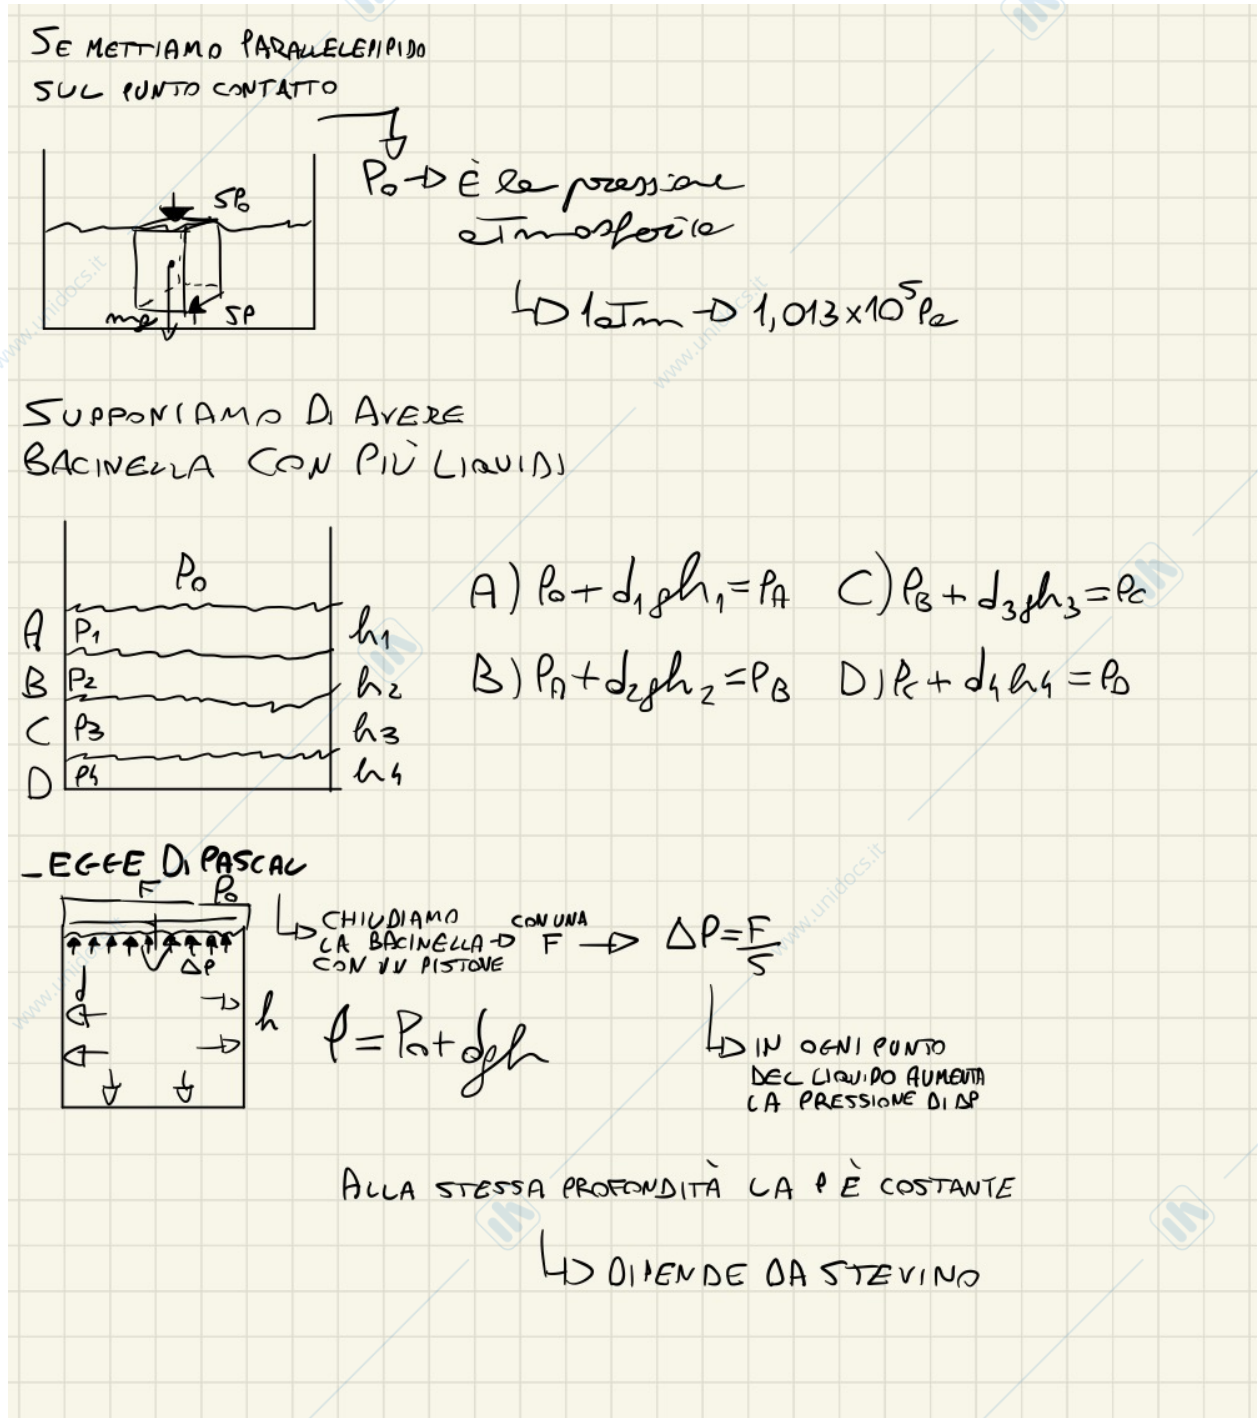 SE METTIAMO PARALLELEPIPIDO
SUL PUNTO CONTATTO
SP₀
P₀ → È la pressione
atmosferica
mg
SP
↳ 1atm → 1,013×10⁵Pa
SUPPONIAMO DI AVERE
BACINELLA CON PIÙ LIQUIDI
P₀
A P₁ h₁
B P₂ h₂
C P₃ h₃
D P₄ h₄
A) P₀ + d₁gh₁ = PA C) PB + d₃gh₃ = PC
B) PA + d₂gh₂ = PB D) PC + d₄h₄ = PD
LEGGE DI PASCAL
F P₀
↳ CHIUDIAMO
LA BACINELLA →
CON UN PISTONE
CON UNA
F → ΔP = F/S
ΔP
d
h
P = P₀ + dgh
↳ IN OGNI PUNTO
DEL LIQUIDO AUMENTA
LA PRESSIONE DI ΔP
ALLA STESSA PROFONDITÀ LA P È COSTANTE
↳ DIPENDE DA STEVINO
www.unidocs.it
www.unidocs.it
www.unidocs.it
www.unidocs.it